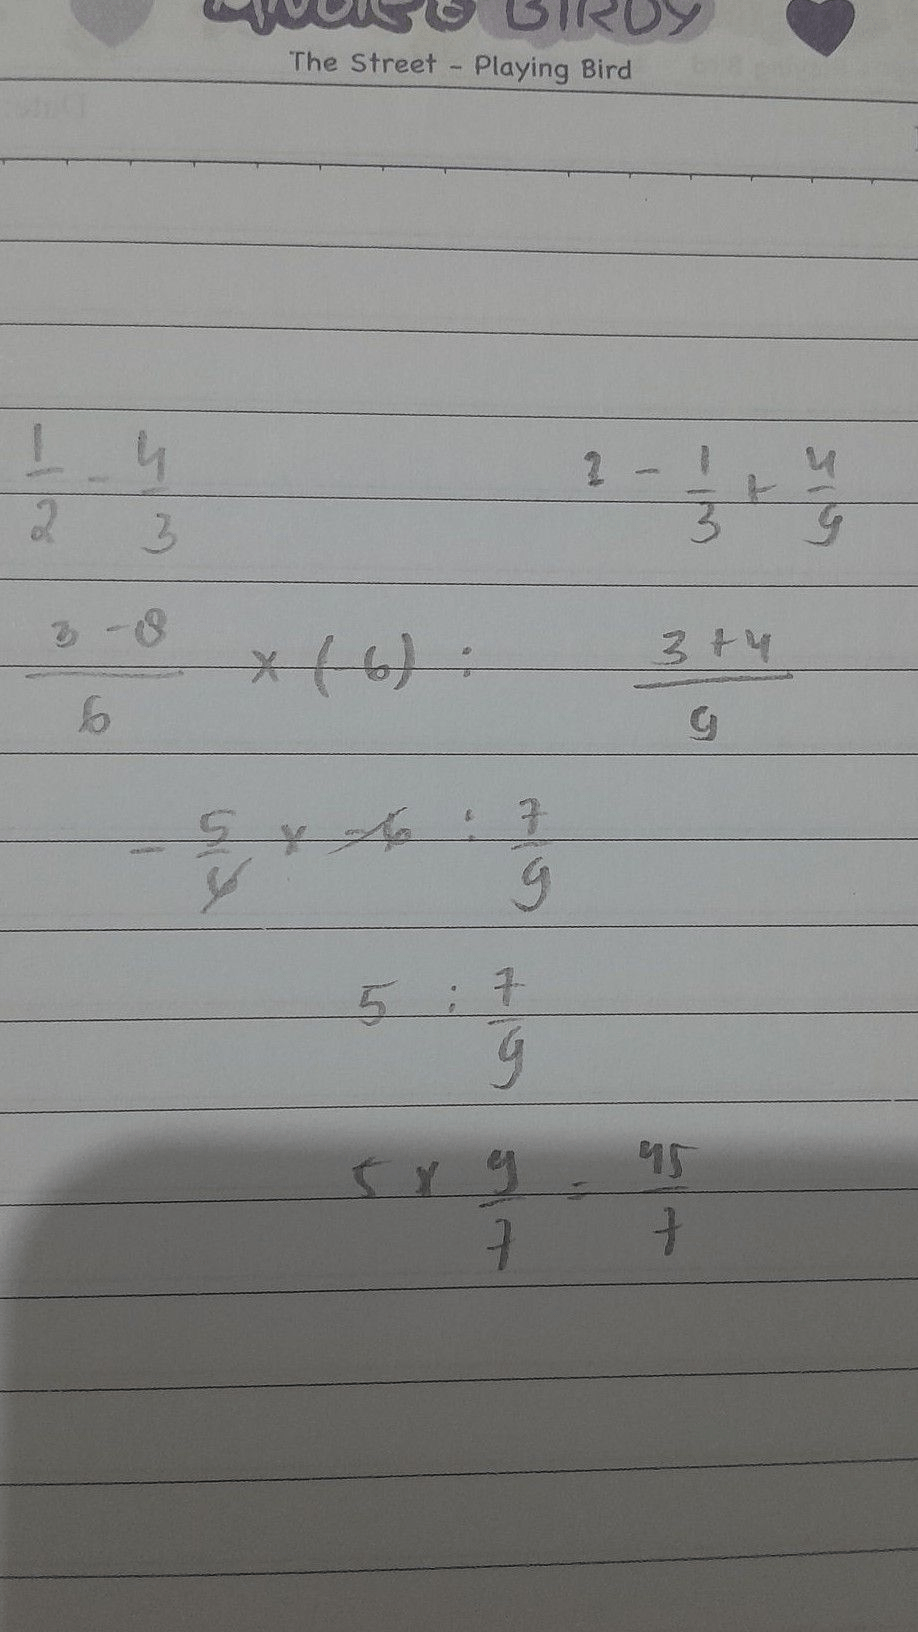 The Street - Playing Bird
1/2 - 4/3 2 - 1/3 + 4/9
(3 - 8)/6 × (-6) : (3 + 4)/9
- 5/6 × -6 : 7/9
5 : 7/9
5 × 9/7 = 45/7